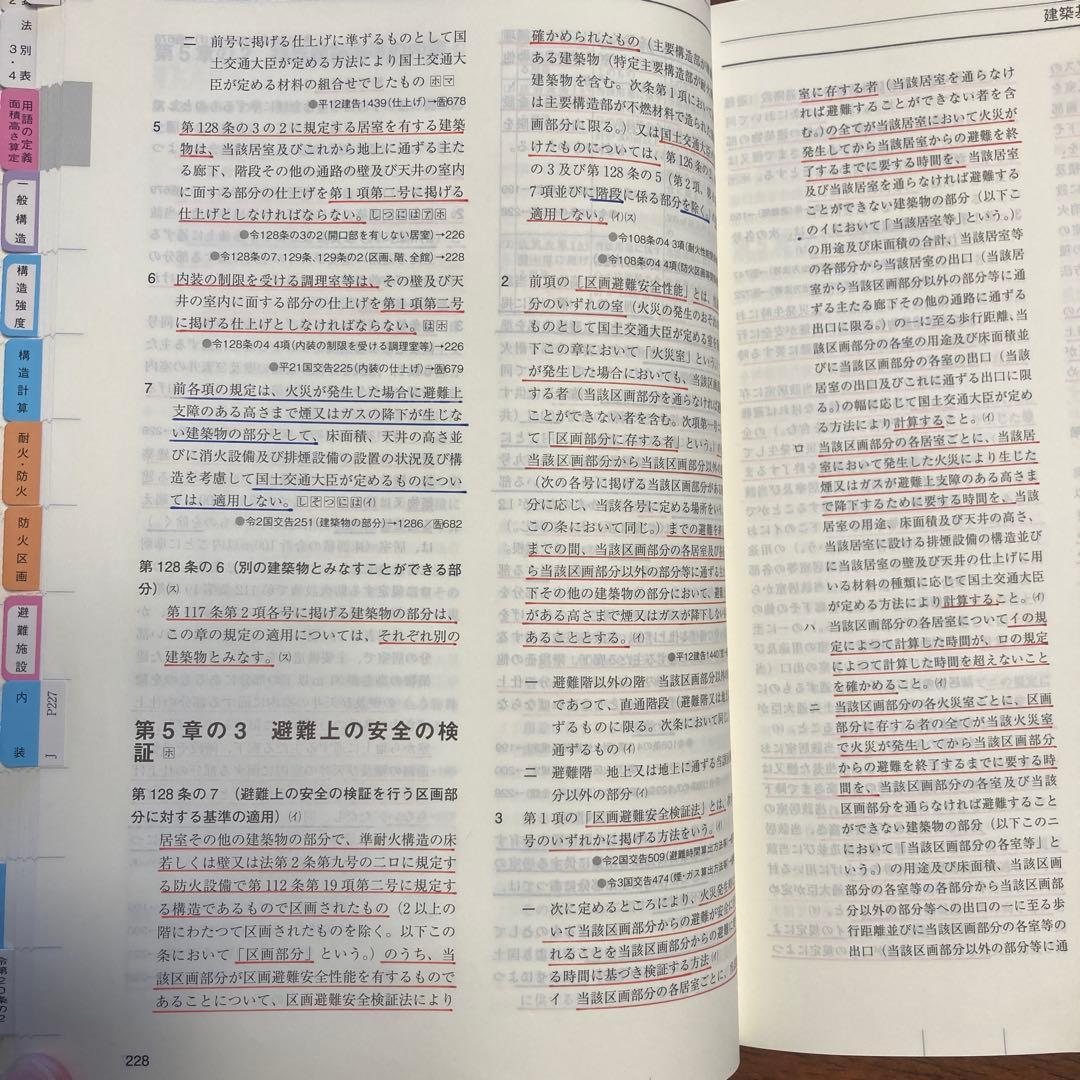 法
別表
3・4
用語の定義
面積高さ算定
一般構造
構造強度
構造計算
耐火・防火
防火区画
避難施設
内装
P227
令第20条の2
二 前号に掲げる仕上げに準ずるものとして国
土交通大臣が定める方法により国土交通大
臣が定める材料の組合せでしたもの ホマ
●平12建告1439(仕上げ)→告678
5 第128条の3の2に規定する居室を有する建築
物は、当該居室及びこれから地上に通ずる主た
る廊下、階段その他の通路の壁及び天井の室内
に面する部分の仕上げを第1項第二号に掲げる
仕上げとしなければならない。しつにはアホ
●令128条の3の2(開口部を有しない居室)→226
●令128条の7、129条、129条の2(区画、階、全館)→228
6 内装の制限を受ける調理室等は、その壁及び天
井の室内に面する部分の仕上げを第1項第二号
に掲げる仕上げとしなければならない。はホ
●令128条の4 4項(内装の制限を受ける調理室等)→226
●平21国交告225(内装の仕上げ)→告679
7 前各項の規定は、火災が発生した場合に避難上
支障のある高さまで煙又はガスの降下が生じな
い建築物の部分として、床面積、天井の高さ並
びに消火設備及び排煙設備の設置の状況及び構
造を考慮して国土交通大臣が定めるものについ
ては、適用しない。しそつには(イ)
●令2国交告251(建築物の部分)→1286/告682
第128条の6(別の建築物とみなすことができる部
分)(ス)
第117条第2項各号に掲げる建築物の部分は、
この章の規定の適用については、それぞれ別の
建築物とみなす。(ス)
第5章の3 避難上の安全の検
証 ホ
第128条の7(避難上の安全の検証を行う区画部
分に対する基準の適用)(イ)
居室その他の建築物の部分で、準耐火構造の床
若しくは壁又は法第2条第九号の二ロに規定す
る防火設備で第112条第19項第二号に規定す
る構造であるもので区画されたもの(2以上の
階にわたつて区画されたものを除く。以下この
条において「区画部分」という。)のうち、当
該区画部分が区画避難安全性能を有するもので
あることについて、区画避難安全検証法により
228
確かめられたもの(主要構造部が
ある建築物(特定主要構造部が
建築物を含む。次条第1項におい
は主要構造部が不燃材料で造られた
画部分に限る。)又は国土交通大臣
けたものについては、第126条の
の3及び第128条の5(第2項、第
7項並びに階段に係る部分を除く。
適用しない。(イ)(ス)
●令108条の4 3項(耐火性能
●令108条の4 4項(防火区画
2 前項の「区画避難安全性能」とは、
分のいずれの室(火災の発生のおそれ
ものとして国土交通大臣が定める室
下この章において「火災室」という。
が発生した場合においても、当該区画
する者(当該区画部分を通らなければ
ことができない者を含む。次項第一号
て「区画部分に存する者」という。)
当該区画部分から当該区画部分以外の
(次の各号に掲げる当該区画部分があ
分に応じ、当該各号に定める場所をい
この条において同じ。)までの避難を
までの間、当該区画部分の各居室及び
ら当該区画部分以外の部分等に通ずる主
下その他の建築物の部分において、避難
がある高さまで煙又はガスが降下しない
あることとする。(イ)
●平12建告1440(
一 避難階以外の階 当該区画部分以外の
であつて、直通階段(避難階又は地上
ずるものに限る。次条において同じ
通ずるもの(イ)
二 避難階 地上又は地上に通ずる当該
分以外の部分(イ)
3 第1項の「区画避難安全検証法」とは、
号のいずれかに掲げる方法をいう。(イ)
●令2国交告509(避難時間算出方法等
●令3国交告474(煙・ガス算出方法等
一 次に定めるところにより、火災発生
いて当該区画部分からの避難が安全に
れることを当該区画部分からの避難に
る時間に基づき検証する方法(イ)
イ 当該区画部分の各居室ごとに、
建築基
室に存する者(当該居室を通らなけ
れば避難することができない者を含
む。)の全てが当該居室において火災が
発生してから当該居室からの避難を終
了するまでに要する時間を、当該居室
及び当該居室を通らなければ避難する
ことができない建築物の部分(以下こ
のイにおいて「当該居室等」という。)
の用途及び床面積の合計、当該居室等
の各部分から当該居室の出口(当該居
室から当該区画部分以外の部分等に通
ずる主たる廊下その他の通路に通ずる
出口に限る。)の一に至る歩行距離、当
該区画部分の各室の用途及び床面積並
びに当該区画部分の各室の出口(当該
居室の出口及びこれに通ずる出口に限
る。)の幅に応じて国土交通大臣が定め
る方法により計算すること。(イ)
ロ 当該区画部分の各居室ごとに、当該居
室において発生した火災により生じた
煙又はガスが避難上支障のある高さま
で降下するために要する時間を、当該
居室の用途、床面積及び天井の高さ、
当該居室に設ける排煙設備の構造並び
に当該居室の壁及び天井の仕上げに用
いる材料の種類に応じて国土交通大臣
が定める方法により計算すること。(イ)
ハ 当該区画部分の各居室についてイの規
定によつて計算した時間が、ロの規定
によつて計算した時間を超えないこと
を確かめること。(イ)
ニ 当該区画部分の各火災室ごとに、区画
部分に存する者の全てが当該火災室
で火災が発生してから当該区画部分
からの避難を終了するまでに要する時
間を、当該区画部分の各室及び当該
区画部分を通らなければ避難すること
ができない建築物の部分(以下このニ
において「当該区画部分の各室等」と
いう。)の用途及び床面積、当該区画
部分の各室等の各部分から当該区画部
分以外の部分等への出口の一に至る歩
行距離並びに当該区画部分の各室等の
出口(当該区画部分以外の部分等に通